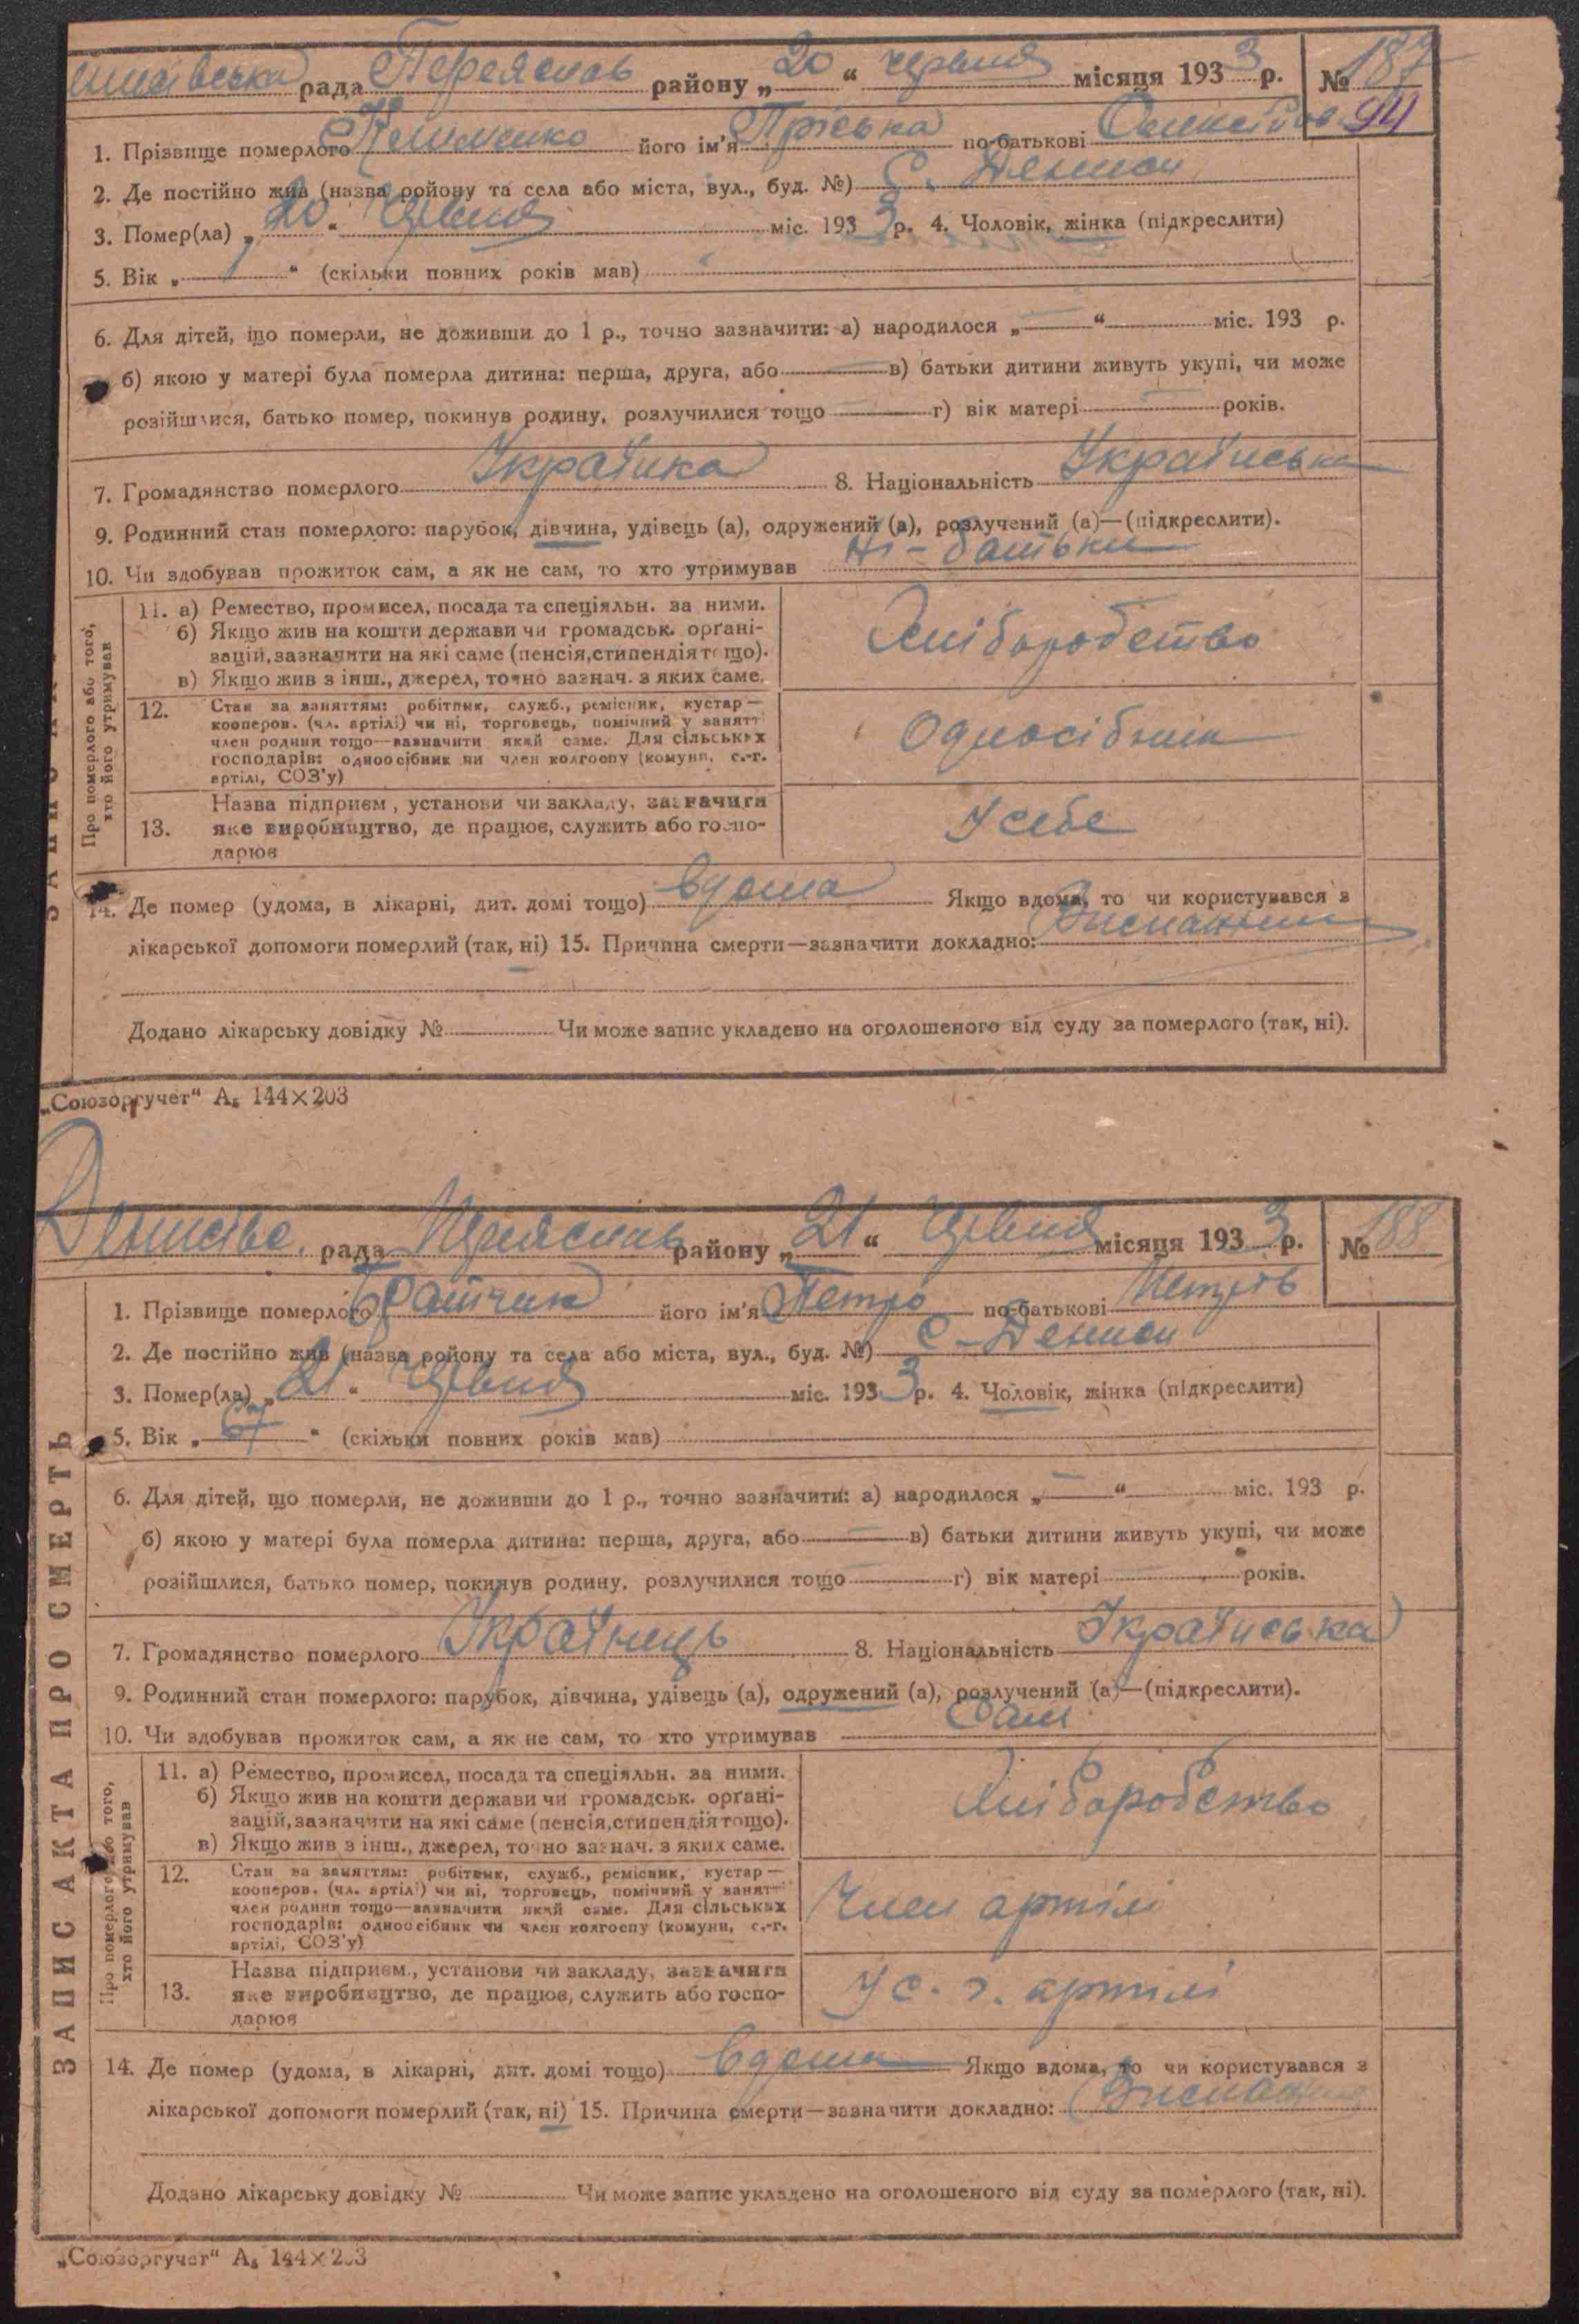 рада Переяслав району „20“ червня місяця 1933 р. № 187
94
1. Прізвище померлого Клименко його ім'я Пріська по-батькові
2. Де постійно жив (назва ройону та села або міста, вул., буд. №) С. Дениси
3. Помер(ла) „20“ Червня міс. 1933 р. 4. Чоловік, жінка (підкреслити)
5. Вік „ “ (скільки повних років мав)
6. Для дітей, що померли, не доживши до 1 р., точно зазначити: а) народилося „—“ міс. 193 р.
б) якою у матері була померла дитина: перша, друга, або — в) батьки дитини живуть укупі, чи може
розійшлися, батько помер, покинув родину, розлучилися тощо — г) вік матері — років.
7. Громадянство померлого Українка 8. Національність Українська
9. Родинний стан померлого: парубок, дівчина, удівець (а), одружений (а), розлучений (а)—(підкреслити).
10. Чи здобував прожиток сам, а як не сам, то хто утримував Ні - батьки
Про померлого або того, хто його утримував
11. а) Ремество, промисел, посада та спеціяльн. за ними.
б) Якщо жив на кошти держави чи громадськ. орґані-
зацій, зазначити на які саме (пенсія, стипендія тощо).
в) Якщо жив з інш., джерел, точно зазнач. з яких саме.
Хліборобство
12. Стан за заняттям: робітник, служб., ремісник, кустар —
кооперов. (чл. артілі) чи ні, торговець, помічний у занятті
член родини тощо—зазначити який саме. Для сільських
господарів: одноосібник чи член колгоспу (комуни, с.-г.
артілі, СОЗ'у)
Односібник
13. Назва підприєм., установи чи закладу, зазначити
яке виробництво, де працює, служить або госпо-
дарює
У себе
14. Де помер (удома, в лікарні, дит. домі тощо) вдома Якщо вдома, то чи користувався з
лікарської допомоги померлий (так, ні) 15. Причина смерти—зазначити докладно:
Додано лікарську довідку № Чи може запис укладено на оголошеного від суду за померлого (так, ні).
„Союзоргучет“ А₅ 144×203
рада Переяслав району „21“ Червня місяця 1933 р. № 188
ЗАПИС АКТА ПРО СМЕРТЬ
1. Прізвище померлого Братчик його ім'я Петро по-батькові Петров
2. Де постійно жив (назва ройону та села або міста, вул., буд. №) С - Дениси
3. Помер(ла) „21“ Червня міс. 1933 р. 4. Чоловік, жінка (підкреслити)
5. Вік „67“ (скільки повних років мав)
6. Для дітей, що померли, не доживши до 1 р., точно зазначити: а) народилося „—“ міс. 193 р.
б) якою у матері була померла дитина: перша, друга, або — в) батьки дитини живуть укупі, чи може
розійшлися, батько помер, покинув родину, розлучилися тощо — г) вік матері — років.
7. Громадянство померлого Українець 8. Національність Українська
9. Родинний стан померлого: парубок, дівчина, удівець (а), одружений (а), розлучений (а)—(підкреслити).
10. Чи здобував прожиток сам, а як не сам, то хто утримував Сам
Про померлого або того, хто його утримував
11. а) Ремество, промисел, посада та спеціяльн. за ними.
б) Якщо жив на кошти держави чи громадськ. орґані-
зацій, зазначити на які саме (пенсія, стипендія тощо).
в) Якщо жив з інш., джерел, точно зазнач. з яких саме.
Хліборобство
12. Стан за заняттям: робітник, служб., ремісник, кустар —
кооперов. (чл. артілі) чи ні, торговець, помічний у занятті
член родини тощо—зазначити який саме. Для сільських
господарів: одноосібник чи член колгоспу (комуни, с.-г.
артілі, СОЗ'у)
Член артілі
13. Назва підприєм., установи чи закладу, зазначити
яке виробництво, де працює, служить або госпо-
дарює
У с. г. артілі
14. Де помер (удома, в лікарні, дит. домі тощо) вдома Якщо вдома, то чи користувався з
лікарської допомоги померлий (так, ні) 15. Причина смерти—зазначити докладно:
Додано лікарську довідку № Чи може запис укладено на оголошеного від суду за померлого (так, ні).
„Союзоргучет“ А₅ 144×203